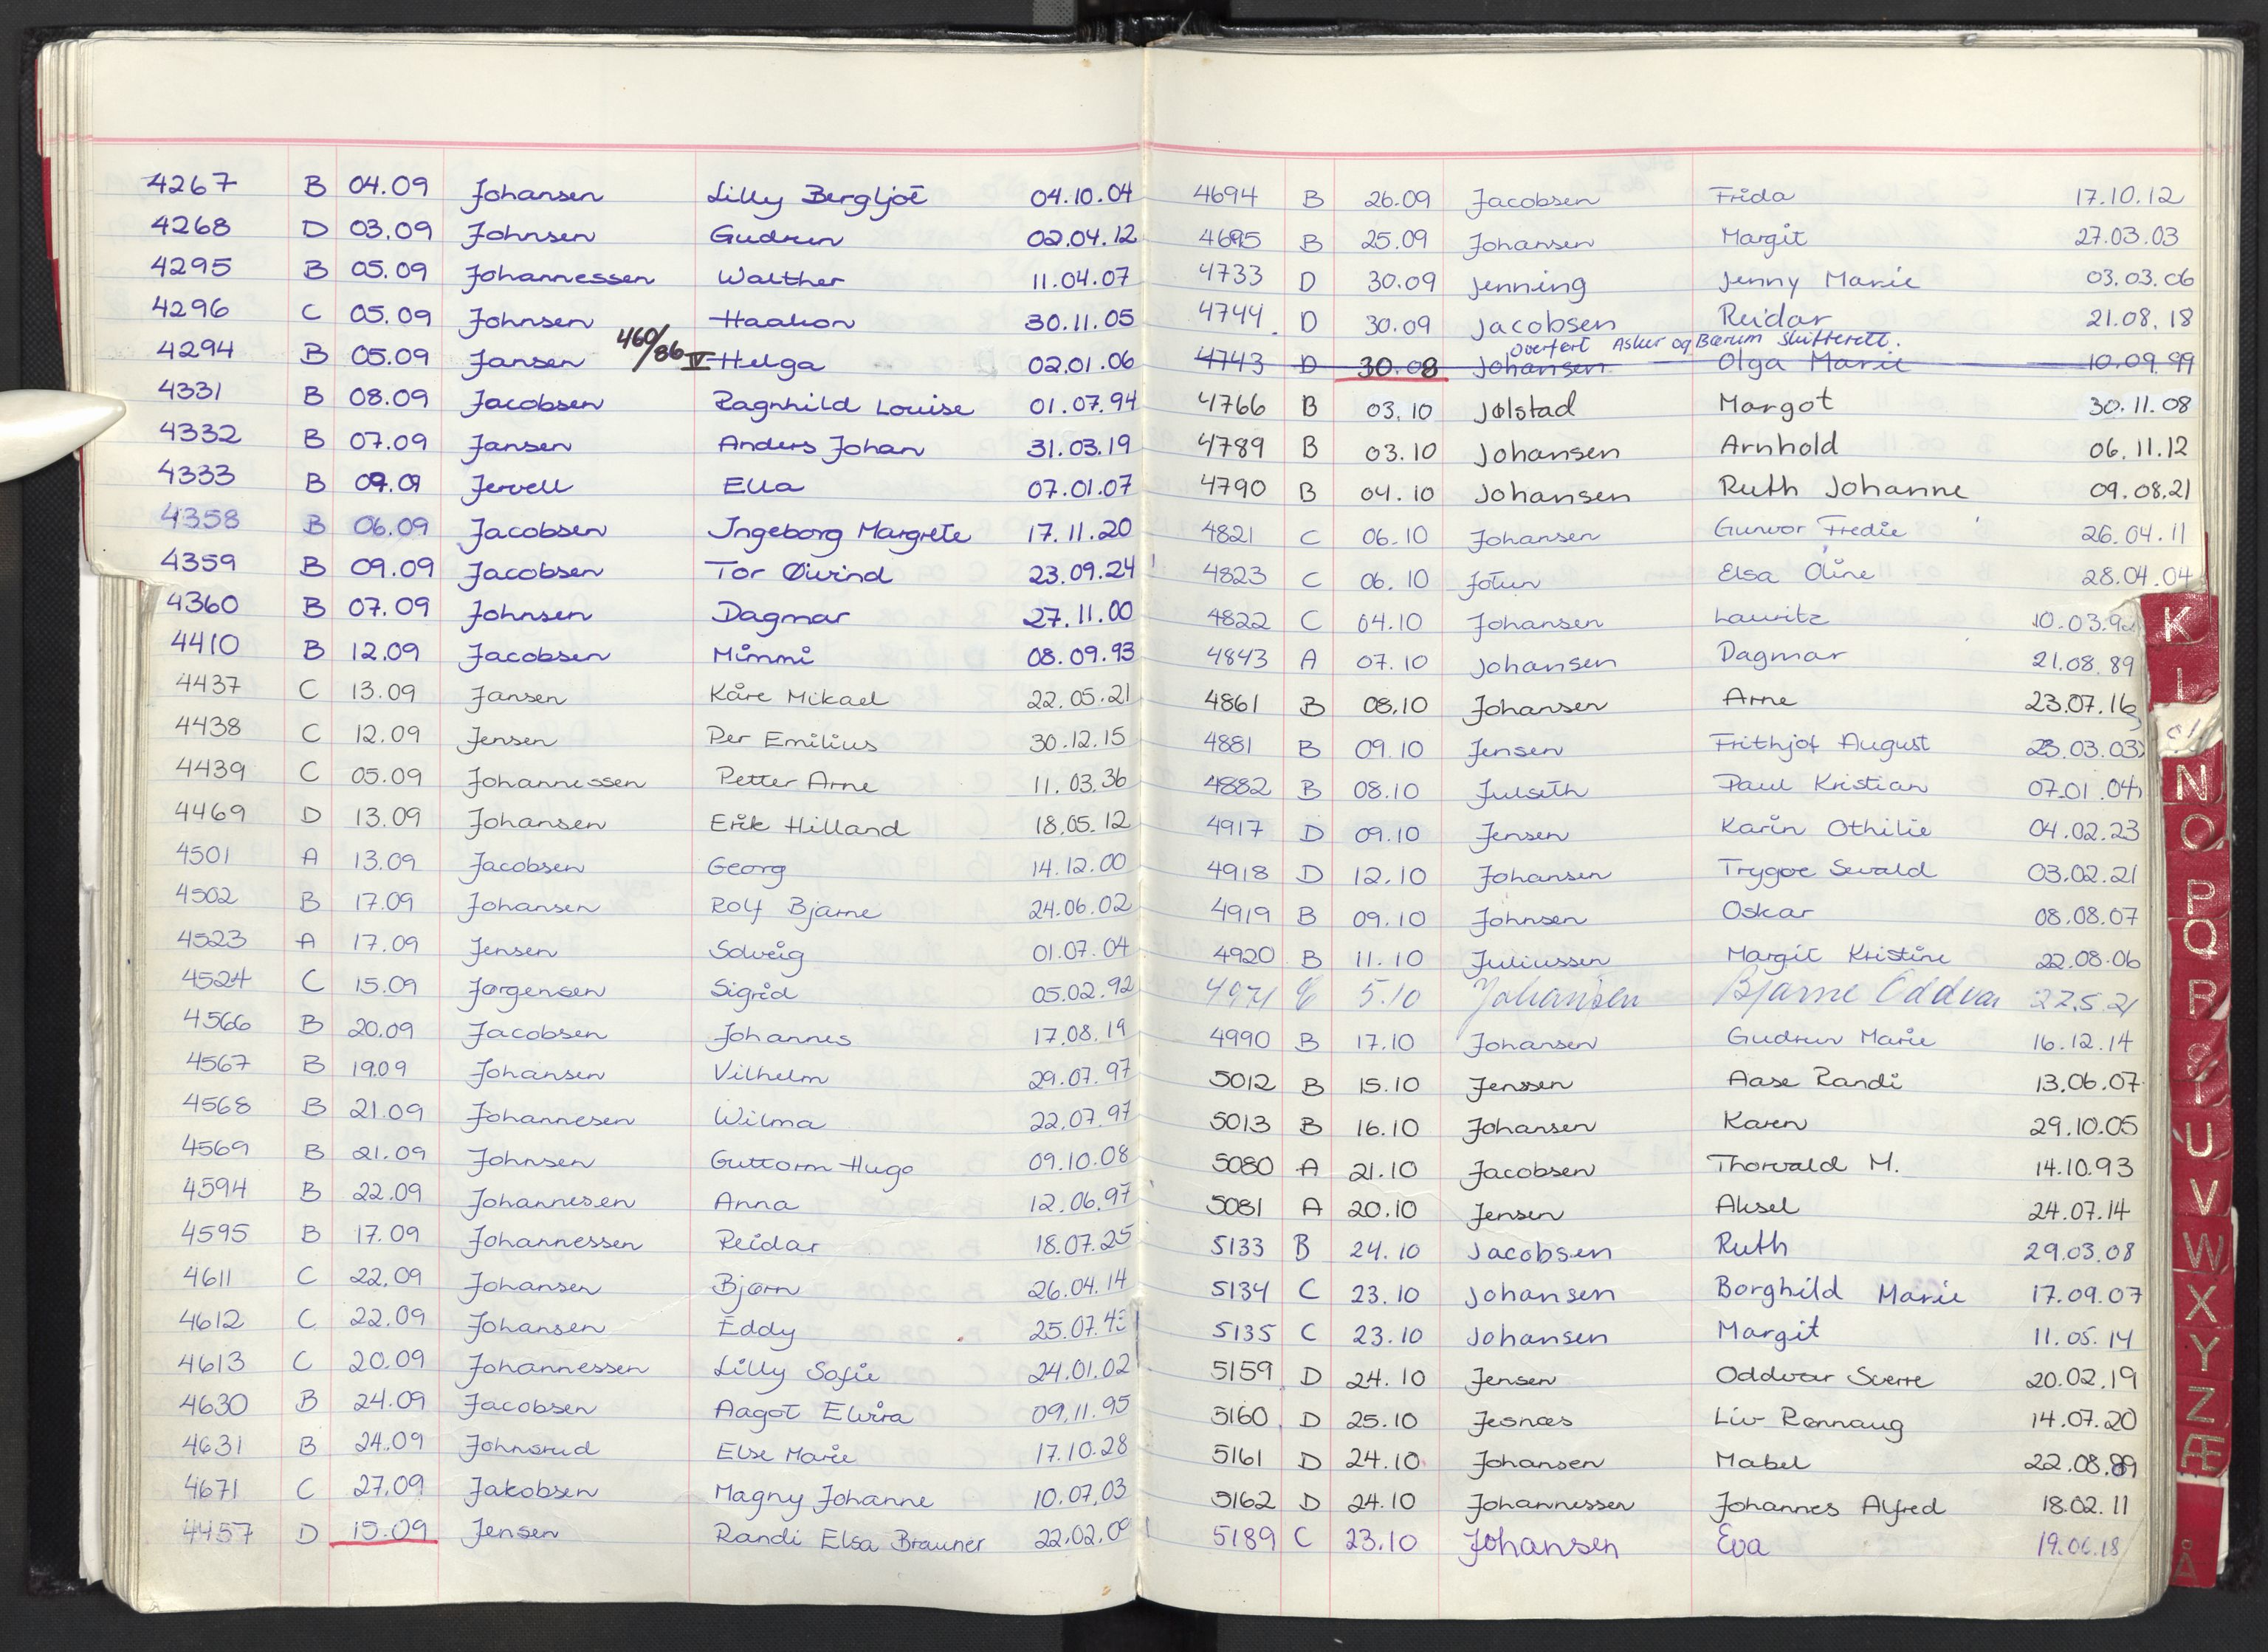 4267 B 04.09 Johansen Lilly Bergljot 04.10.04
4268 D 03.09 Johnsen Gudrun 02.04.12
4295 B 05.09 Johannessen Walther 11.04.07
4296 C 05.09 Johnsen Haakon 30.11.05
4294 B 05.09 Jansen 460/86 V Helga 02.01.06
4331 B 08.09 Jacobsen Ragnhild Louise 01.07.94
4332 B 07.09 Jansen Anders Johan 31.03.19
4333 B 09.09 Jervell Ella 07.01.07
4358 B 06.09 Jacobsen Ingeborg Margrete 17.11.20
4359 B 09.09 Jacobsen Tor Øivind 23.09.24
4360 B 07.09 Johnsen Dagmar 27.11.00
4410 B 12.09 Jacobsen Mimmi 08.09.93
4437 C 13.09 Jansen Kåre Mikael 22.05.21
4438 C 12.09 Jensen Per Emilius 30.12.15
4439 C 05.09 Johannessen Petter Arne 11.03.36
4469 D 13.09 Johansen Erik Hilland 18.05.12
4501 A 13.09 Jacobsen Georg 14.12.00
4502 B 17.09 Johansen Rolf Bjarne 24.06.02
4523 A 17.09 Jensen Solveig 01.07.04
4524 C 15.09 Jørgensen Sigrid 05.02.92
4566 B 20.09 Jacobsen Johannes 17.08.19
4567 B 19.09 Johansen Vilhelm 29.07.97
4568 B 21.09 Johannesen Wilma 22.07.97
4569 B 21.09 Johnsen Guttorm Hugo 09.10.08
4594 B 22.09 Johannesen Anna 12.06.97
4595 B 17.09 Johannessen Reidar 18.07.25
4611 C 22.09 Johansen Bjørn 26.04.14
4612 C 22.09 Johansen Eddy 25.07.43
4613 C 20.09 Johannessen Lilly Sofie 24.01.02
4630 B 24.09 Jacobsen Aagot Elvira 09.11.95
4631 B 24.09 Johnsrud Else Marie 17.10.28
4671 C 27.09 Jakobsen Magny Johanne 10.07.03
4457 D 15.09 Jensen Randi Elsa Brauner 22.02.09
4694 B 26.09 Jacobsen Frida 17.10.12
4695 B 25.09 Johansen Margit 27.03.03
4733 D 30.09 Jenning Jenny Marie 03.03.06
4744 D 30.09 Jacobsen Reidar 21.08.18
overført Asker og Bærum Skifterett.
4743 D 30.08 Johansen Olga Marie 10.09.99
4766 B 03.10 Jølstad Margot 30.11.08
4789 B 03.10 Johansen Arnhold 06.11.12
4790 B 04.10 Johansen Ruth Johanne 09.08.21
4821 C 06.10 Johansen Gunvor Fredie 26.04.11
4823 C 06.10 Jotun Elsa Oline 28.04.04
4822 C 04.10 Johansen Lauritz 10.03.92
4843 A 07.10 Johansen Dagmar 21.08.89
4861 B 08.10 Johansen Arne 23.07.16
4881 B 09.10 Jensen Frithjof August 23.03.03
4882 B 08.10 Julseth Paul Kristian 07.01.04
4917 D 09.10 Jensen Karin Othilie 04.02.23
4918 D 12.10 Johansen Trygve Sevald 03.02.21
4919 B 09.10 Johnsen Oskar 08.08.07
4920 B 11.10 Juliussen Margit Kristine 22.08.06
4971 C 5.10 Johansen Bjarne Oddvar 27.5.21
4990 B 17.10 Johansen Gudrun Marie 16.12.14
5012 B 15.10 Jenssen Aase Randi 13.06.07
5013 B 16.10 Johansen Karen 29.10.05
5080 A 21.10 Jacobsen Thorvald M. 14.10.93
5081 A 20.10 Jensen Aksel 24.07.14
5133 B 24.10 Jacobsen Ruth 29.03.08
5134 C 23.10 Johansen Borghild Marie 17.09.07
5135 C 23.10 Johansen Margit 11.05.14
5159 D 24.10 Jensen Oddvar Sverre 20.02.19
5160 D 25.10 Jesnæs Liv Rannaug 14.07.20
5161 D 24.10 Johansen Mabel 22.08.89
5162 D 24.10 Johannessen Johannes Alfred 18.02.11
5189 C 23.10 Johansen Eva 19.06.18
K
L
N
O
P
Q
R
S
T
U
V
W
X
Y
Z
Æ
Å